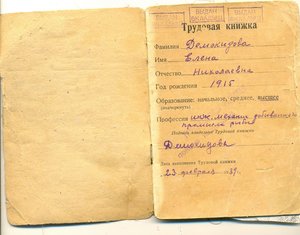 ВЫДАН
ВЫДАН
ВКЛАДЫШ
Трудовая книжка
Фамилия Демокидова
Имя Елена
Отчество Николаевна
Год рождения 1915
Образование: начальное, среднее, высшее
(подчеркнуть)
Профессия инж. механик добывающей
промысла рыбы
Подпись владельца Трудовой книжки
Демокидова
Дата заполнения Трудовой книжки
23 февраля 1939г.